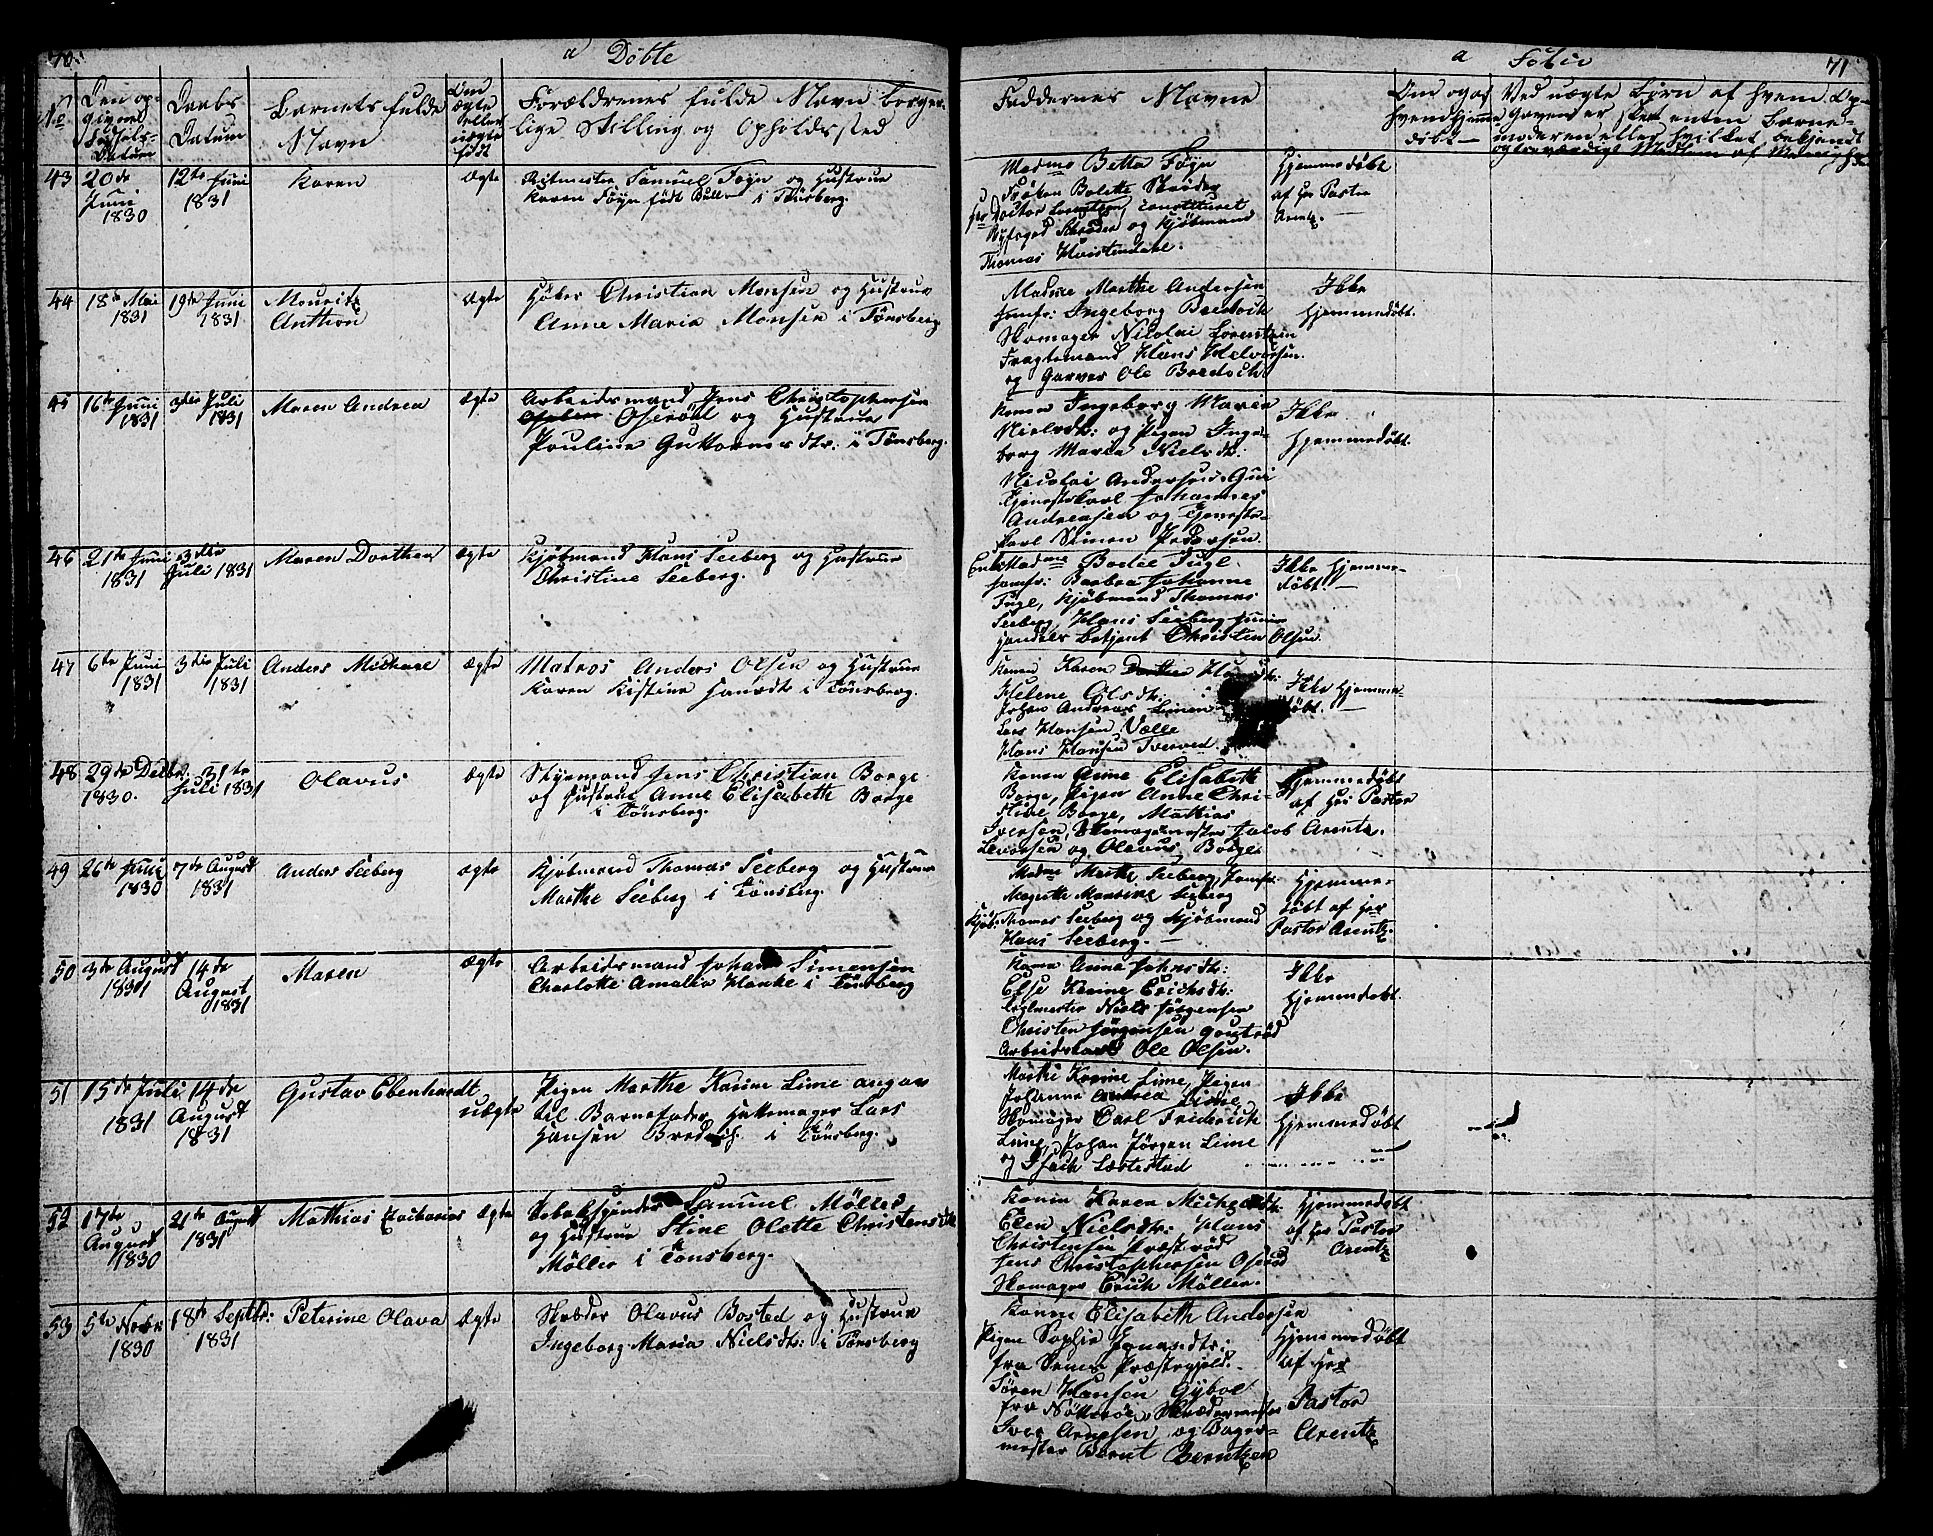 70.
a Döbte
No
Den opgivne Födsels-Datum
Daabs Datum
Barnets fulde Navn
Om ægte eller uægte födt
Forældrenes fulde Navn borgerlige Stilling og Opholdssted
43
20de Juni 1830
12te Juni 1831
Karen
Ægte
Ritmester Samuel Foyn og Hustrue
Karen Föyn födt Bull i Tönsberg.
44
18de Mai 1831
19de Juni 1831
Mouritz Anthon
Ægte
Höker Christian Monsen og Hustrue
Anne Maria Monsen i Tönsberg
45
16de Juni 1831
3die Juli 1831
Maren Andrea
Ægte
Arbeidsmand Jens Christophersen
Oseröd og Hustrue
Pouline Guttormsdtr. i Tönsberg.
46
21de Juni 1831
3die Juli 1831
Maren Dorthea
Ægte
Kjöbmand Hans Seeberg og Hustrue
Christine Seeberg.
47
6te Juni 1831
3die Juli 1831
Anders Michael
Ægte
Matros Anders Olsen og Hustrue
Karen Kistine Hansdtr i Tönsberg.
48
29de Decbr. 1830.
31te Juli 1831
Olavus
Ægte
Styrmand Jens Christian Borge
og Hustrue Anne Elisabeth Borge
i Tönsberg.
49
26de Juni 1830
7de August 1831
Anders Seeberg
Ægte
Kjöbmand Thomas Seeberg og Hustrue
Marthe Seeberg i Tönsberg.
50
3de August 1831
14de August 1831
Maren
Ægte
Arbeidsmand Johan Simensen
Charlotte Amalia Hanke i Tönsberg
51
15de Juli 1831
14de August 1831
Gustav Ebenhardt
uægte
Pigen Marthe Karine Lime angav
til Barnefader Hattemager Lars
Hansen Bredoch. i Tönsberg.
52
17de August 1830
21de August 1831
Mathias Zacharias
Ægte
Tobaksspinder Samuel Möller
og Hustrue Stine Olette Christensdtr
Möller i Tönsberg.
53
5te Novbr 1830
18de Septbr: 1831
Peterine Olava
Ægte
Skræder Olavus Bosted og Hustrue
Ingeborg Maria Nielsdtr: i Tönsberg
a Folio
71
Faddernes Navne
Om og af hvem hjemmedöbt
Ved uægte Börn af hvem Opgavend er skeet enten Barnemoderen eller hvilket bekjendt og troværdigt Medlem af Menigh.
Madme Betta Foyn
Fröken Bolette Skröder
Hr Doctor Lorentzen, constitueret
Byfoged Schröder og Kjöbmand
Thomas Hvistendahl.
Hjemmedöbt
af Hr Pastor
Arentz.
Madme Marthe Andersen
Jomfr: Ingeborg Bredoch
Skomager Nicolai Lorentzen
Fragtemand Hans Halvorsen.
og Garver Ole Bredoch.
Ikke
Hjemmedöbt.
Konen Ingeborg Maria
Nielsdtr: og Pigen Inge-
borg Maria Nielsdtr.
Nicolai Andersen
Tjenestekarl Johannes
Andreasen og Tjeneste-
karl Simon Pedersen.
Ikke
Hjemmedöbt.
Enke Madme Bodil Fugl.
Jomfr: Barbra Johanne
Fugl, Kjöbmand Thomas
Seeberg, Hans Seeberg junior
Handels betjent Christian Olsen.
Ikke Hjemme-
döbt.
Konen Karen
Helene Olsdtr:
Johan Andreas Simen
Lars Hansen Valle
Hans Hansen Tverved
Ikke Hjemme-
döbt.
Konen Anne Elisabeth
Borge, Pigen Anne Chri-
stine Borge, Mathias
Iversen, Skomagermester Jacob
Levorsen og Olavus Borge.
Hjemmedöbt
af Hr Pastor
Arentz.
Madme Marthe Seeberg, Jomfr:
Magrethe Mandine Seeberg
Kjöb: Thomas Seeberg og Kjöbmand
Hans Seeberg.
Hjemme-
döbt af Hr
Pastor Arentz.
Konen Anna Johnsdtr:
Else Karine Erichsdtr:
Teglmester Niels Jörgensen
Christen Jörgensen Gontröd
Arbeidskarl Ole Olsen.
Ikke
Hjemmedöbt.
Marthe Karine Lime, Pigen
Johanne Andrea Lime
Skomager Carl Friderich
Lime, Johan Jörgen Lime
og Isach Læstestad
Ikke
Hjemmedöbt
Konen Karen Michelsdtr:
Elen Nielsdtr: Hans
Christensen Præsteröd
Jens Christophersen Oseröd
Skomager Erich Möller.
Hjemmedöbt
af Hr Pastor
Arentz
Konen Elisabeth Andersen
Pigen Sophie Jonasdtr:
fra Sems Præstegjeld.
Sören Hansen Gyboe
fra Nötteröe, Skrædermester
Iver Arnesen og Bager-
mester Bernt Berntzen
Hjemmedöbt
af Hr
Pastor
Arentz